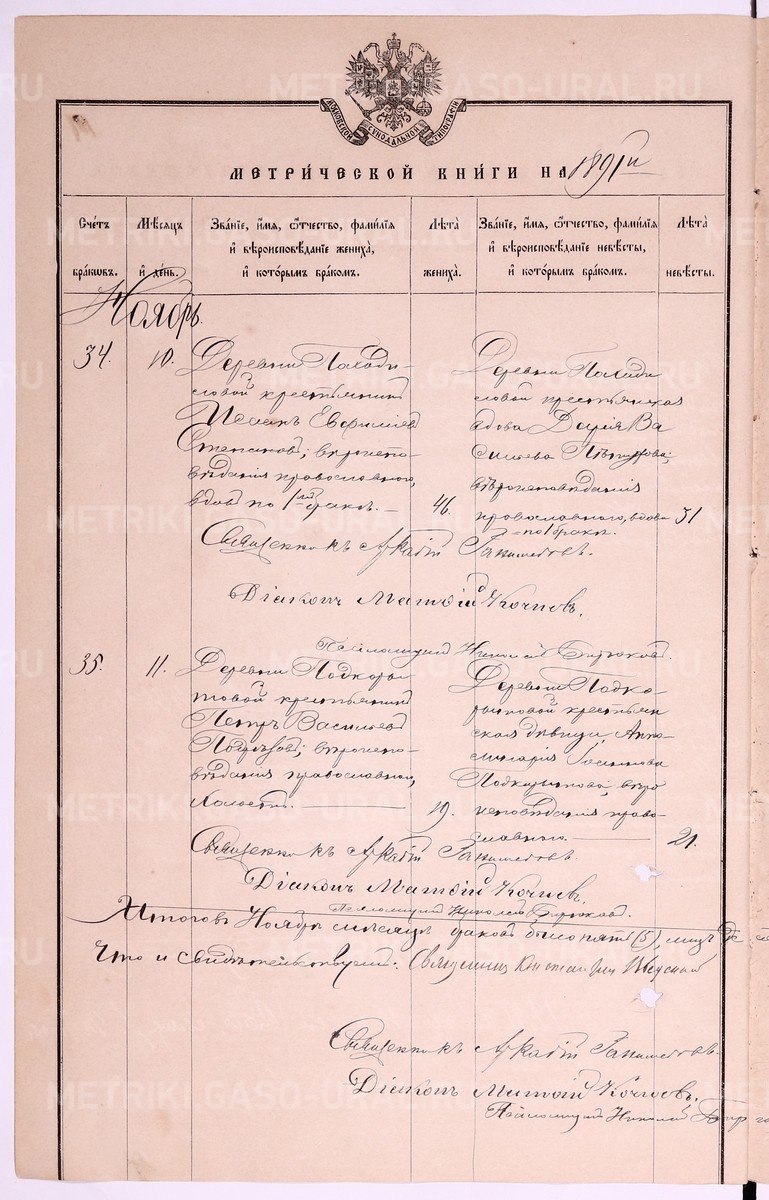 МОСКОВСКОЙ СУНОДАЛЬНОЙ ТИПОГРАФІИ
МЕТРИ́ЧЕСКОЙ КНИ́ГИ НА 1891й
Сче́тъ бра́кωвъ.
Мѣ́сяцъ и҆ де́нь.
Зва́ніе, и҆́мя, ѻ҆́тчество, фами́лія и҆ вѣроисповѣ́даніе жениха̀, и҆ кото́рымъ бра́комъ.
Лѣ́та жениха̀.
Зва́ніе, и҆́мя, ѻ҆́тчество, фами́лія и҆ вѣроисповѣ́даніе невѣ́сты, и҆ кото́рымъ бра́комъ.
Лѣ́та невѣ́сты.
Ноябрь.
34.
10.
Деревни
словой крестьянинъ
Евфиміевъ
Степановъ; вѣроиспо-
вѣданія православнаго,
вдовъ по 1мъ бракѣ.
46.
Деревни
словой крестьянская
вдова Дарія Ва
сильева
вѣроисповѣданія
православнаго, вдова
по 1 бракѣ.
51
Священникъ Аркадій
Діаконъ Матѳій
Псаломщикъ Николай Бирюковъ.
35.
11.
Деревни Подкоры
товой крестьянинъ
Петръ Васильевъ
вѣроиспо-
вѣданія православнаго,
Холостъ.
19.
Деревни Подко-
рытовой крестьян
ская дѣвица Апол
линарія
Подкорытова, вѣро
исповѣданія право-
славнаго.
21.
Священникъ Аркадій
Діаконъ Матѳій
Псаломщикъ Николай Бирюковъ.
Итого въ Ноябрѣ мѣсяцѣ браковъ было пять (5), лицъ
Что и свидѣтельствуемъ: Священникъ Константинъ
Священникъ Аркадій
Діаконъ Матѳій
Псаломщикъ Николай
METRIKI.GASO-URAL.RU